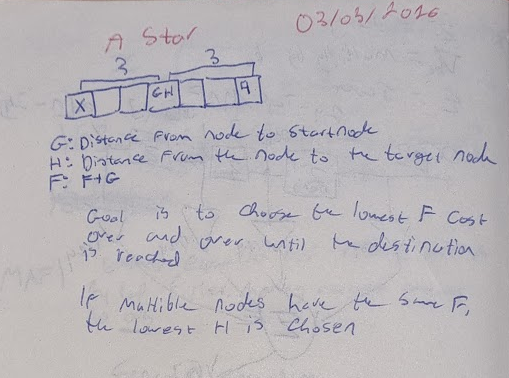 03/03/2026
A Star
3 3
X GH 9
G: Distance From node to Startnode
H: Distance From the node to the target node
F: F+G
Goal is to choose the lowest F Cost
over and over until the destination
is reached
If Multible nodes have the Same F,
the lowest H is Chosen